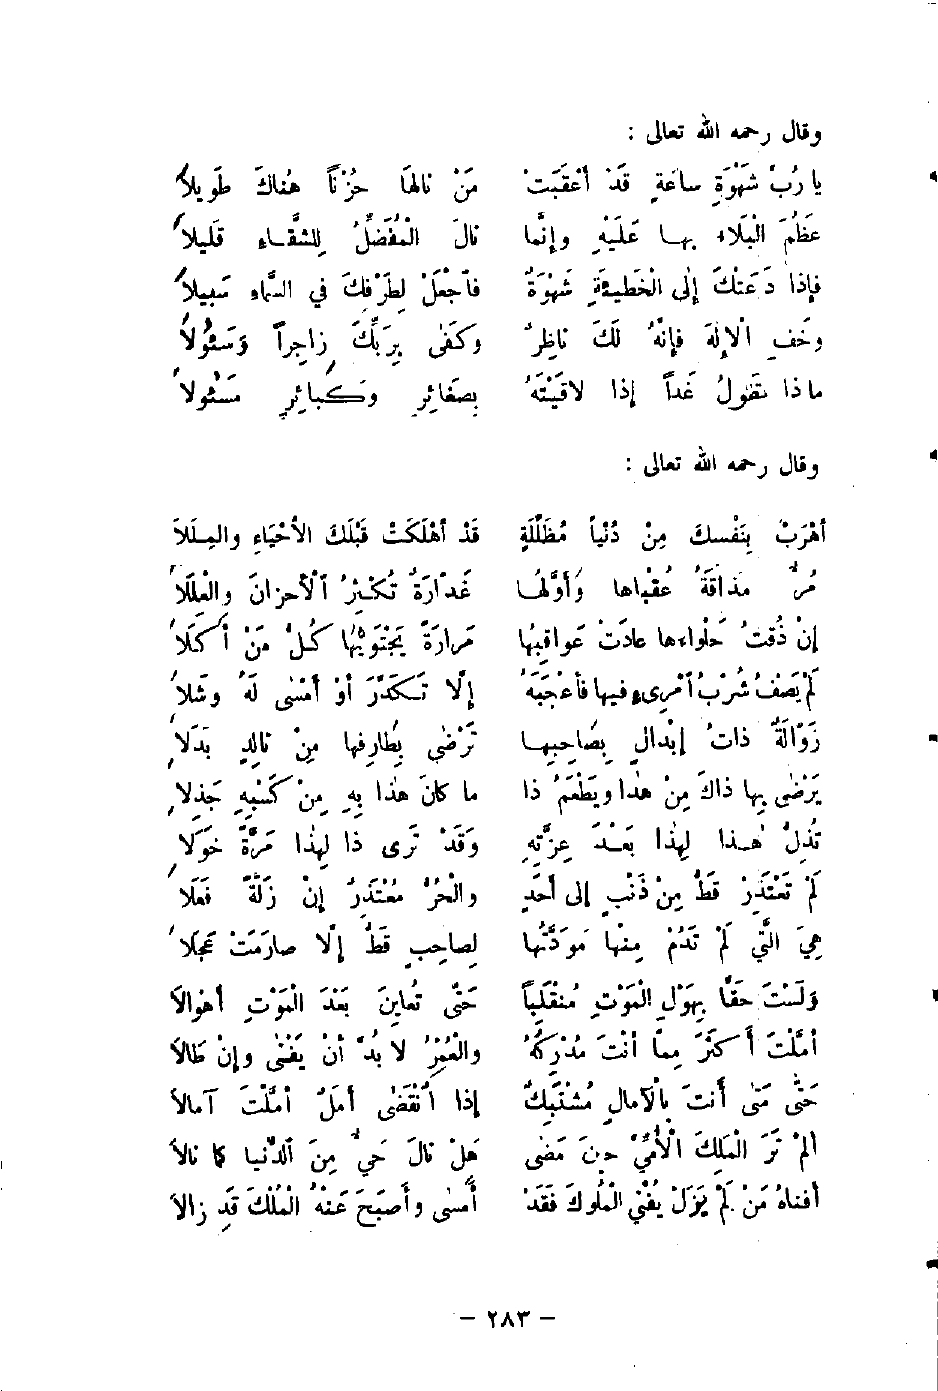 وقال رحمه الله تعالى :
يا رُبَّ شَهْوَةِ ساعَةٍ قَدْ أعْقَبَتْ مَنْ نالَها حُزْناً هُناكَ طَويلاَ
عَظُمَ الْبَلاءُ بِها عَلَيْهِ وإنَّما نالَ الْمُفَضِّلُ لِلشَّقاءِ قَليلاَ
فإذا دَعَتْكَ إلى الْخَطيئةِ شَهْوَةٌ فاَجْعَلْ لِطَرْفِكَ في السَّماءِ سَبيلاَ
وخَفِ الْإِلَهَ فإنَّهُ لَكَ ناظِرٌ وكَفَى بِرَبِّكَ زاجِراً وَسَئُولاَ
ماذا تَقولُ غَداً إذا لاقَيْتَهُ بِصَغائِرٍ وكَبائِرٍ مَسْئولاَ
وقال رحمه الله تعالى :
أهْرَبْ بِنَفْسكَ مِنْ دُنْياً مُظَلِّلَةٍ قَدْ أهْلَكَتْ قَبْلَكَ الأحْيَاءِ والمِلَلاَ
مُرٌّ مَذاقَةُ عُقْباها وَأوَّلُها غَدّارَةٌ تُكْثِرُ اَلْأحزانَ والْعِلَلاَ
إنْ ذُقْتَ حَلْواءها عادَتْ عَواقِبُها مَرارَةً يَجْتَويْها كُلُّ مَنْ أَكَلاَ
لَمْ يَصْفُ شُرْبُ اَمْرِىءٍ فيها فأعْجَبَهُ إلّا تَكَدَّرَ أوْ أمْسَى لَهُ وَشَلاَ
زَوّالَةٌ ذاتُ إبْدالٍ بِصَاحِبِها تَرْضى بِطارِفِها مِنْ تالِدٍ بَدَلاَ
يَرْضى بِها ذاكَ مِنْ هٰذا ويَطْعَمُ ذا ما كانَ هٰذا بِهِ مِنْ كَسْبِهِ جَذِلاَ
تُذِلُّ هٰذا لِهٰذا بَعْدَ عِزَّتِهِ وَقَدْ تَرى ذا لِهٰذا مَرَّةً خَوَلاَ
لَمْ تَعْتَذِرْ قَطُّ مِنْ ذَنْبٍ إلى أحَدٍ والْحُرُّ مُعْتَذِرٌ إنْ زَلَّةً فَعَلاَ
هِيَ الَّتي لَمْ تَدُمْ مِنْها مَوَدَّتُها لِصاحِبٍ قَطُّ إلّا صارَمَتْ عَجِلاَ
وَلَسْتَ حَقًّا بِهَوْلِ الْمَوْتِ مُنْقَلِباً حَتَّى تُعايِنَ بَعْدَ الْمَوْتِ أهْوالاَ
أمَّلْتَ أَكثَرَ مِمّا أنْتَ مُدْرِكُهُ والْعُمْرُ لا بُدَّ أنْ يَفْنى وإنْ طَالاَ
حَتّى مَتى أَنتَ بِاَلآمالِ مُشْتَبِكٌ إذا اَنْقَضى أمَلٌ أمَّلْتَ آمالاَ
ألمْ تَرَ الْمَلِكَ الْأُمِّيَّ حينَ مَضى هَلْ نالَ حَيٌّ مِنَ اَلدُّنيا كما نالاَ
أفناهُ مَنْ لَمْ يَزَلْ يُفْني الْمُلوكَ فَقَدْ أمسى وأَصبَحَ عَنْهُ الْمُلْكُ قَدِ زالاَ
- ٢٨٣ -